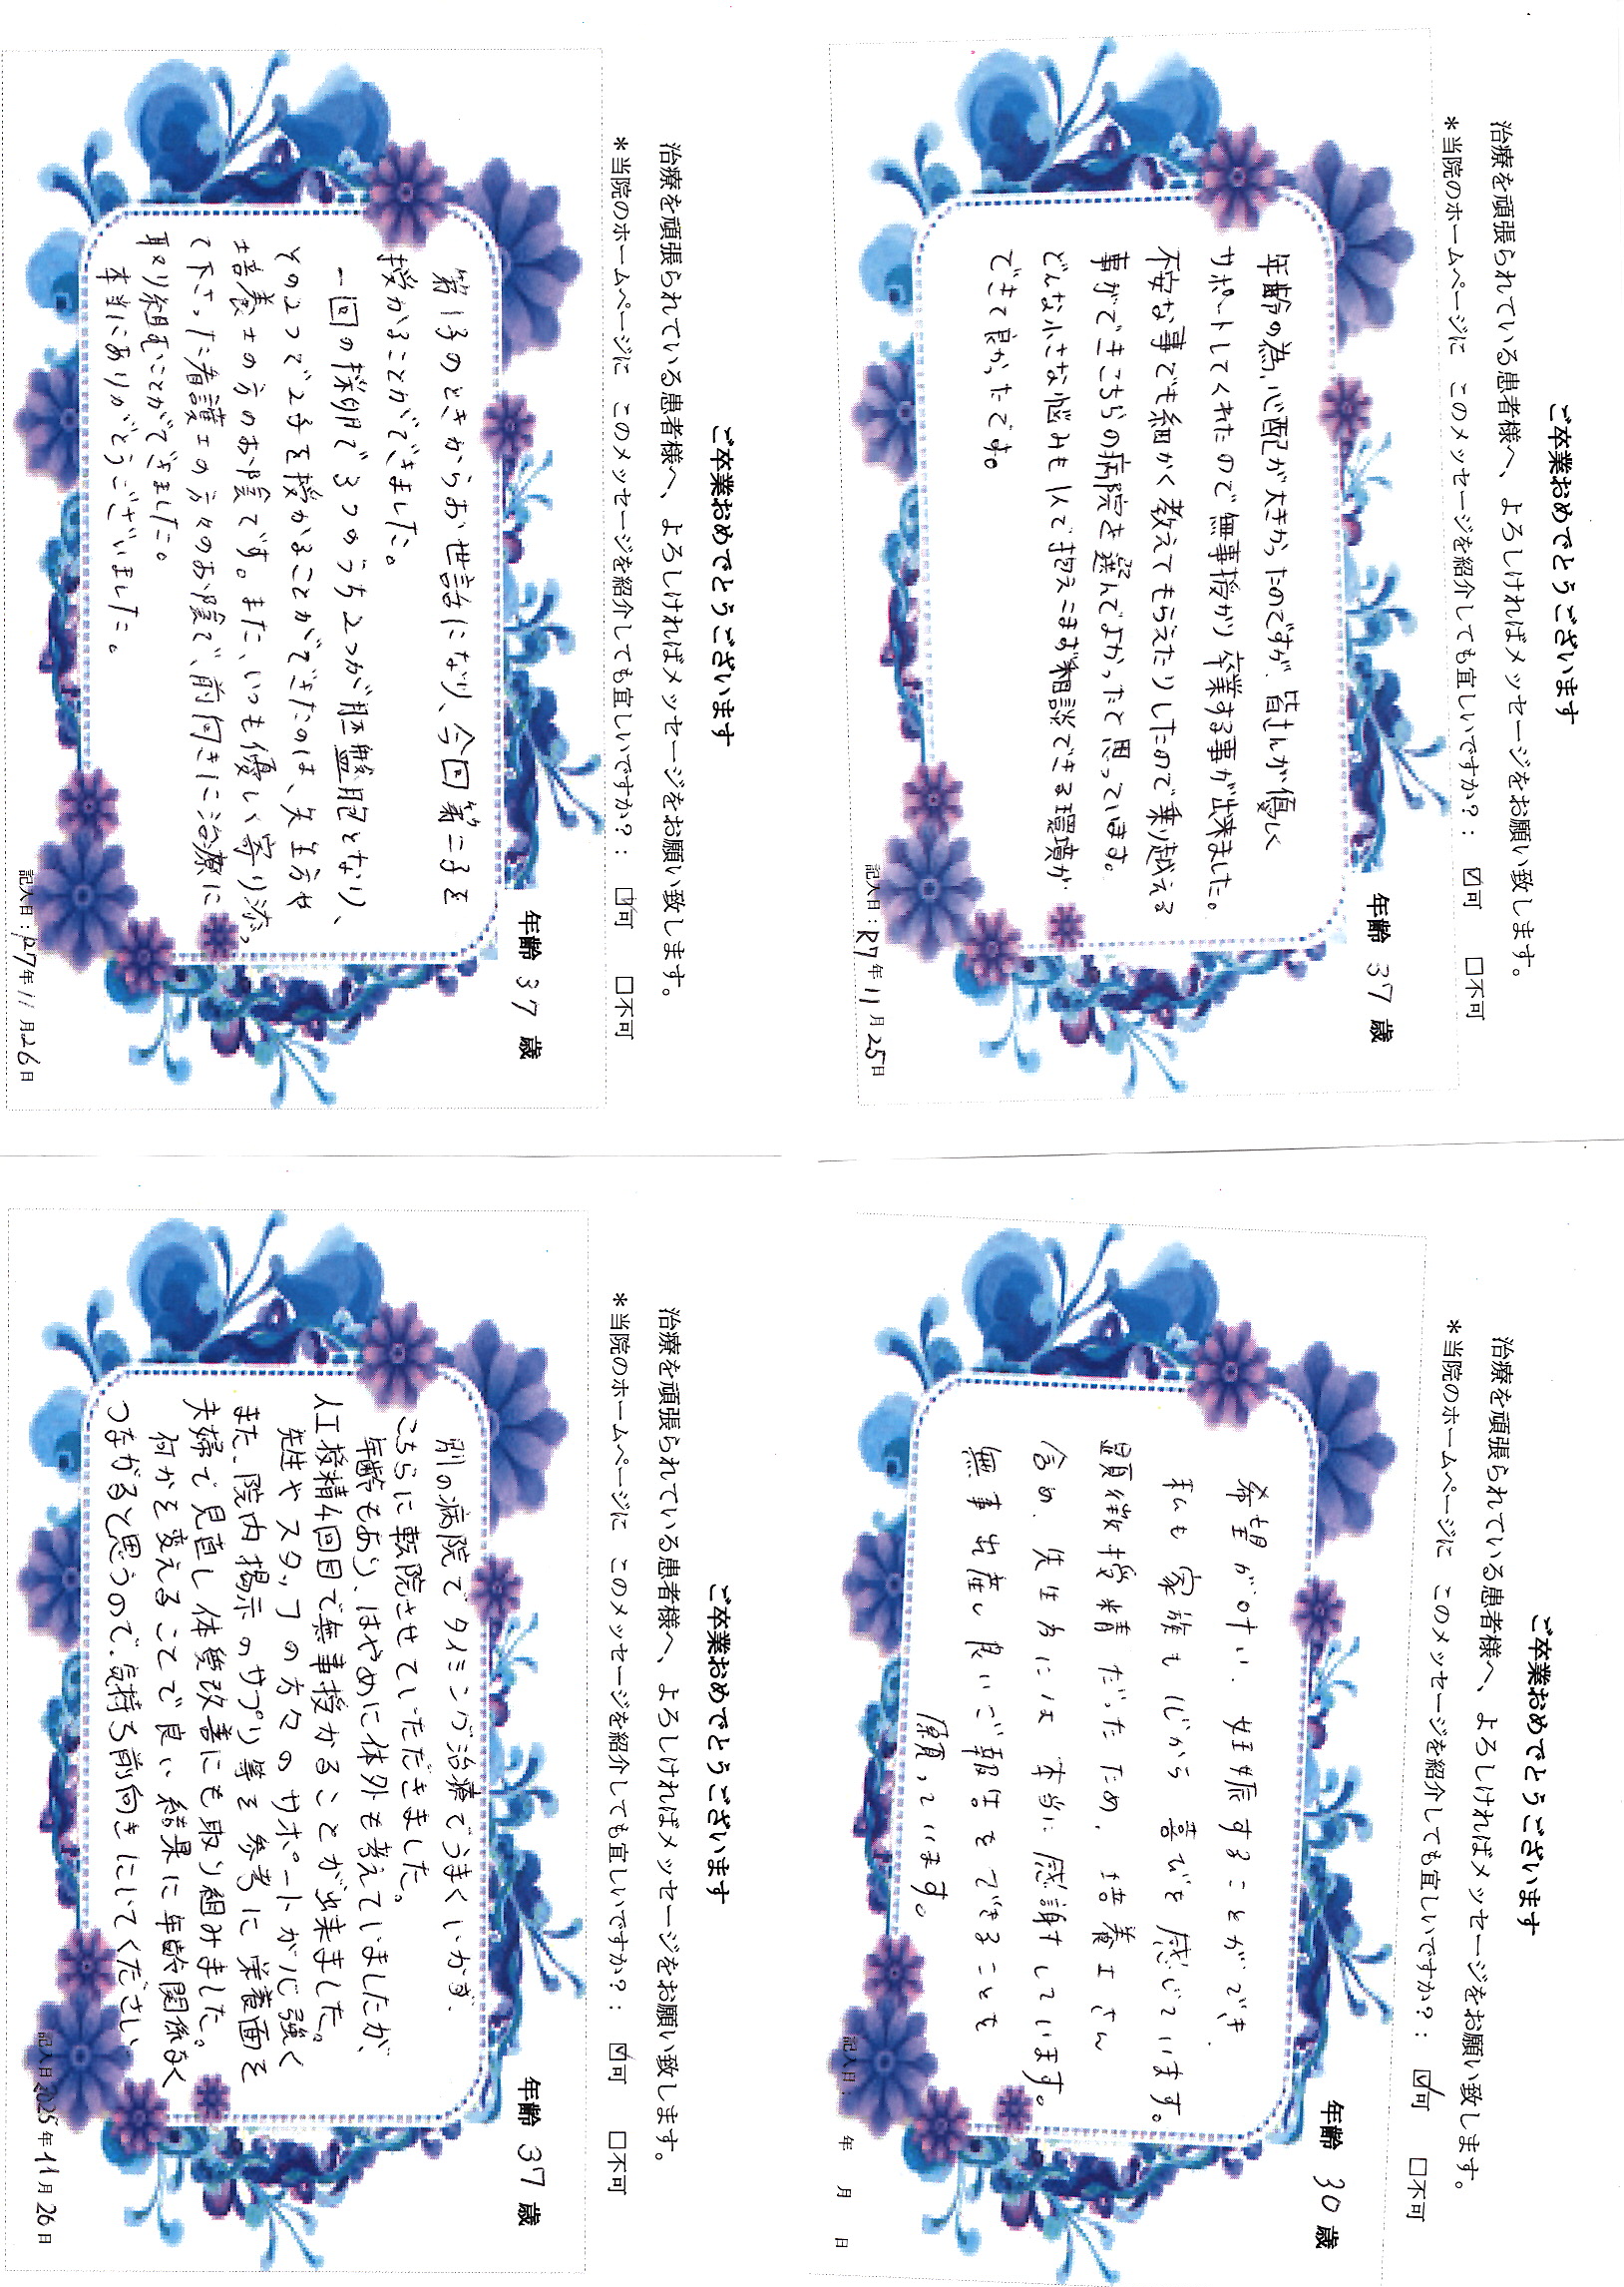 ご卒業おめでとうございます
治療を頑張られている患者様へ、よろしければメッセージをお願い致します。
*当院のホームページに このメッセージを紹介しても宜しいですか?: ☑可 □不可
年齢 37 歳
第1子のときからお世話になり、今回第二子を
授かることができました。
一回の採卵で3つのうち2つが胚盤胞となり、
その2つで2子を授かることができたのは、先生方や
培養士の方のお陰です。また、いつも優しく寄り添っ
て下さった看護士の方々のお陰で、前付きに治療に
取り組むことができました。
本当にありがとうございました。
記入日:R7年11月26日
ご卒業おめでとうございます
治療を頑張られている患者様へ、よろしければメッセージをお願い致します。
*当院のホームページに このメッセージを紹介しても宜しいですか?: ☑可 □不可
年齢 37 歳
年齢の為、心配が大きかったのですが、皆さんが優しく
サポートしてくれたので無事授かり卒業する事が出来ました。
不安な事でも細かく教えてもらえたりしたので乗り越える
事ができこちらの病院を選んでよかったと思っています。
どんな小さな悩みも1人で抱えこまず相談できる環境が
できて良かったです。
記入日:R7年11月25日
ご卒業おめでとうございます
治療を頑張られている患者様へ、よろしければメッセージをお願い致します。
*当院のホームページに このメッセージを紹介しても宜しいですか?: ☑可 □不可
年齢 37 歳
別の病院でタイミング治療でうまくいかず、
こちらに転院させていただきました。
年齢もあり、はやめに体外も考えていましたが、
人工授精4回目で無事授かることが出来ました。
先生やスタッフの方々のサポートが心強く
また、院内掲示のサプリ等を参考に栄養面を
夫婦で見直し体質改善にも取り組みました。
何かを変えることで良い結果に年齢関係なく
つながると思うので、気持ち前向きにいてください
記入日:2025年11月26日
ご卒業おめでとうございます
治療を頑張られている患者様へ、よろしければメッセージをお願い致します。
*当院のホームページに このメッセージを紹介しても宜しいですか?: ☑可 □不可
年齢 30 歳
希望が叶い、妊娠することができ、
私も家族も心から喜びを感じています。
顕微授精だったため、培養士さん
含め、先生方には本当に感謝しています。
無事出産し良いご報告をできることを
願っています。
記入日: 年 月 日